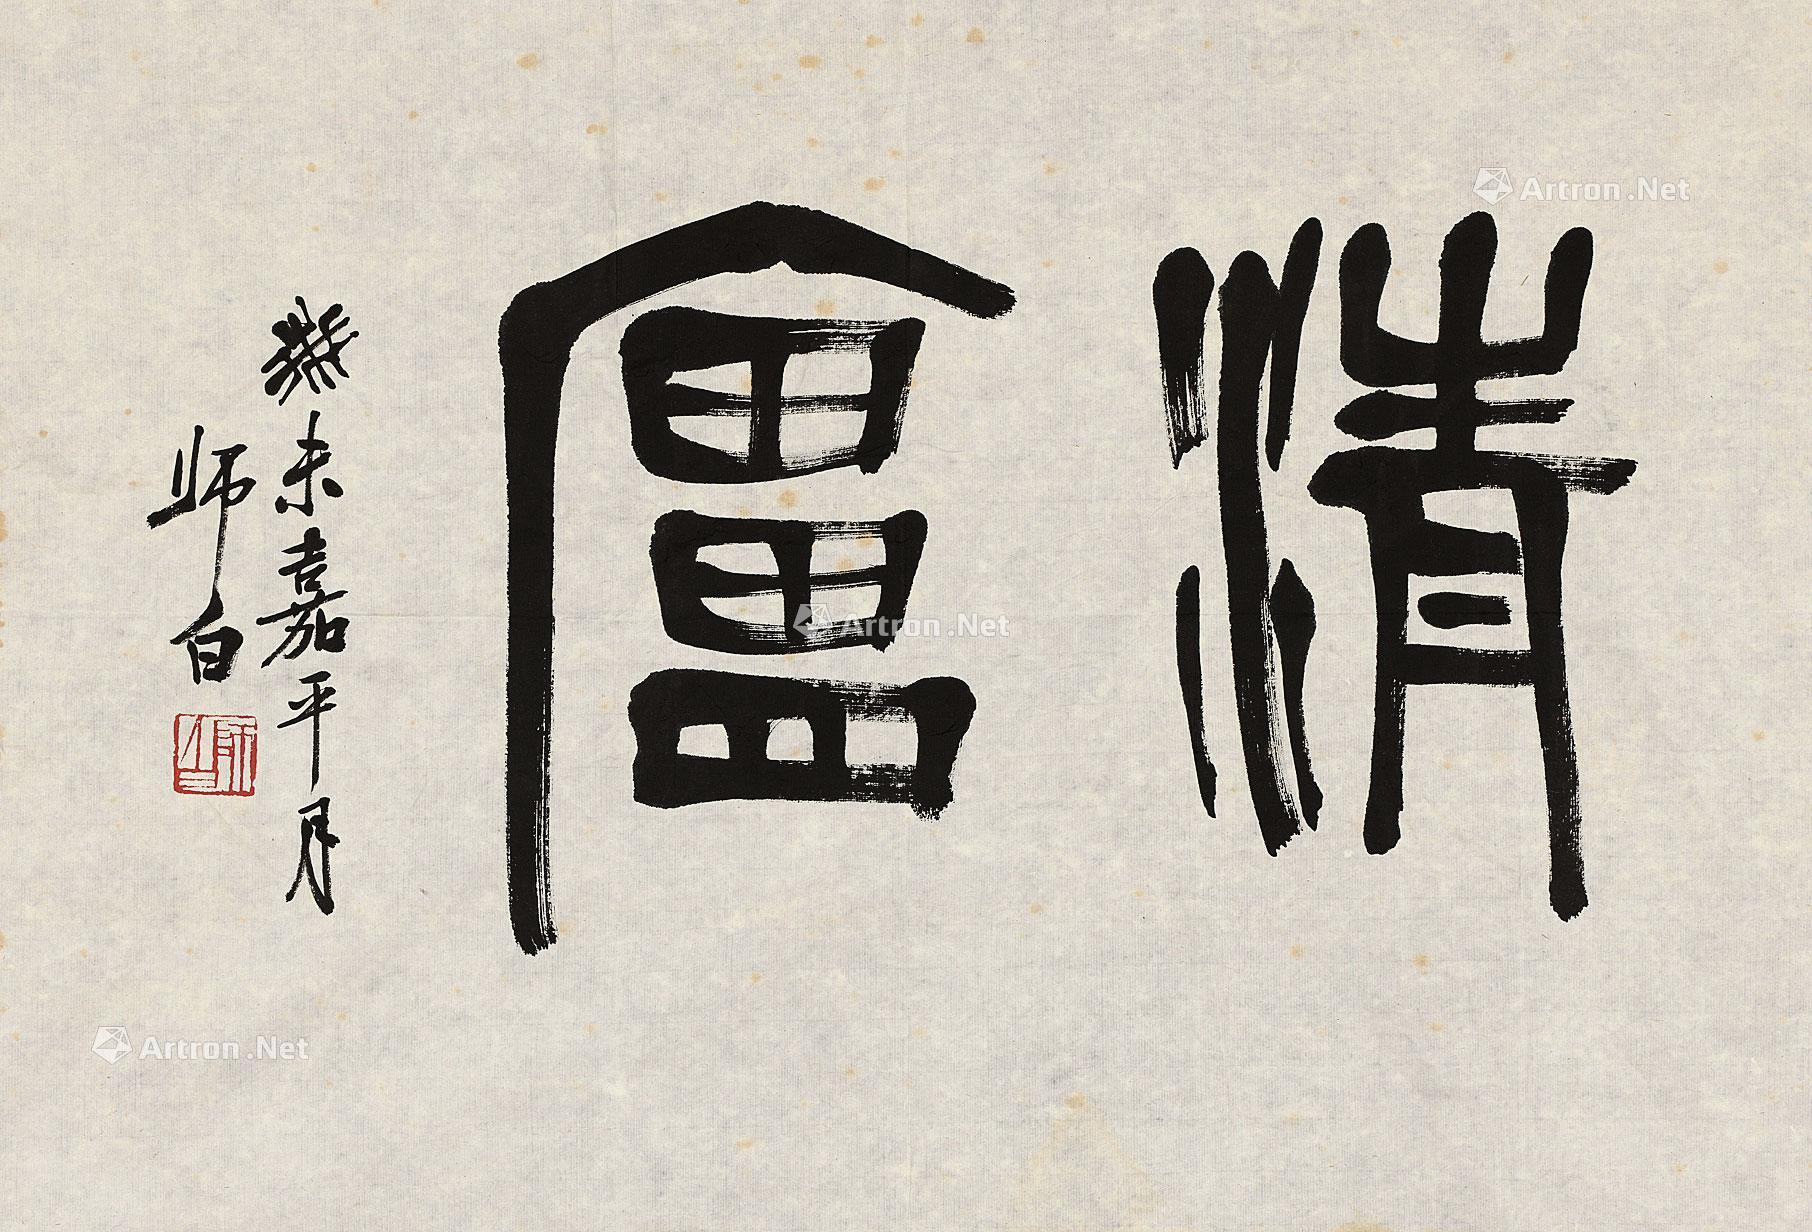 清廬
癸未嘉平月
师白
Artron.Net
Artron.Net
Artron.Net